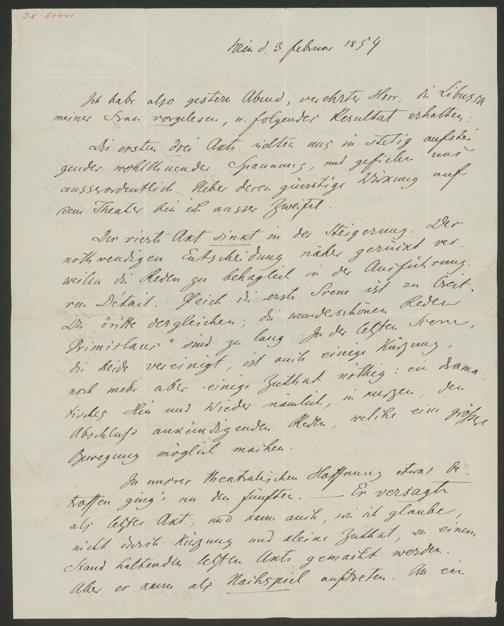 JN 80441
Wien d. 3 februar 1854
Ich habe also gestern Abend, verehrter Herr, die Libussa
meiner Frau vorgelesen, u. folgendes Resultat erhalten:
Die ersten drei Akte hielten uns in stetig aufstei
gender wohlthuender Spannung, und gefielen uns
ausserordentlich. Ueber deren günstige Wirkung auf
dem Theater bin ich ausser Zweifel.
Der vierte Akt sinkt in der Steigerung. Der
nothwendigen Entscheidung näher gerückt ver
weilen die Reden zu behaglich in der Ausführung
von Détail. Gleich die erste Scene ist zu breit.
Die dritte desgleichen; die wunderschönen Reden
"Primislaus" sind zu lang. In der letzten Scene,
die beide vereinigt, ist auch einige Kürzung,
noch mehr aber einige Zuthat nöthig: ein drama
tisches Hin und Wieder nämlich, in kurzen, den
Abschluß ankündigenden Reden, welche eine größere
Bewegung möglich machen.
In unsrer theatralischen Hoffnung etwas be
troffen ging's an den fünften. — Er versagte
als letzter Akt, und kann auch, wie ich glaube,
nicht durch Kürzung und kleine Zuthat, zu einem
Stand haltenden letzten Akte gemacht werden.
Aber er kann als Nachspiel auftreten. An ein